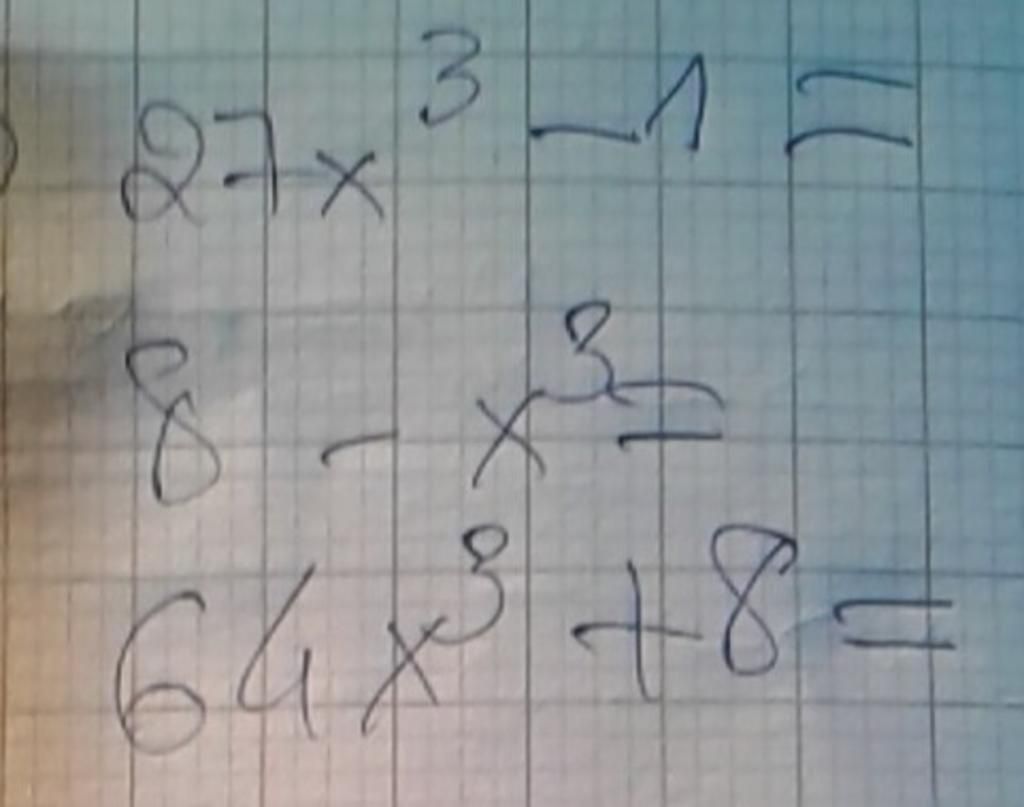 27x³ - 1 =
8 - x³ =
64x³ + 8 =